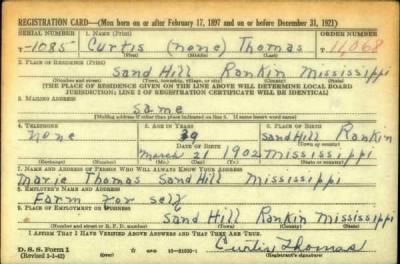 REGISTRATION CARD—(Men born on or after February 17, 1897 and on or before December 31, 1921)
SERIAL NUMBER 1. NAME (Print) ORDER NUMBER
T-1085 Curtis (none) Thomas T 11,068
(First) (Middle) (Last)
2. PLACE OF RESIDENCE (Print)
Sand Hill Rankin Mississippi
(Number and street) (Town, township, village, or city) (County) (State)
[THE PLACE OF RESIDENCE GIVEN ON THE LINE ABOVE WILL DETERMINE LOCAL BOARD
JURISDICTION; LINE 2 OF REGISTRATION CERTIFICATE WILL BE IDENTICAL]
3. MAILING ADDRESS
Same
[Mailing address if other than place indicated on line 2. If same insert word same]
4. TELEPHONE 5. AGE IN YEARS 6. PLACE OF BIRTH
none 39 Sand Hill Rankin
DATE OF BIRTH (Town or county)
March 21 1902 Mississippi
(Exchange) (Number) (Mo.) (Day) (Yr.) (State or country)
7. NAME AND ADDRESS OF PERSON WHO WILL ALWAYS KNOW YOUR ADDRESS
Marie Thomas Sand Hill Mississippi
8. EMPLOYER'S NAME AND ADDRESS
Farm for self
9. PLACE OF EMPLOYMENT OR BUSINESS
Sand Hill Rankin Mississippi
(Number and street or R. F. D. number) (Town) (County) (State)
I AFFIRM THAT I HAVE VERIFIED ABOVE ANSWERS AND THAT THEY ARE TRUE.
D. S. S. Form 1
(Revised 1-1-42) 16—21630-1 Curtis Thomas
(Registrant's signature)